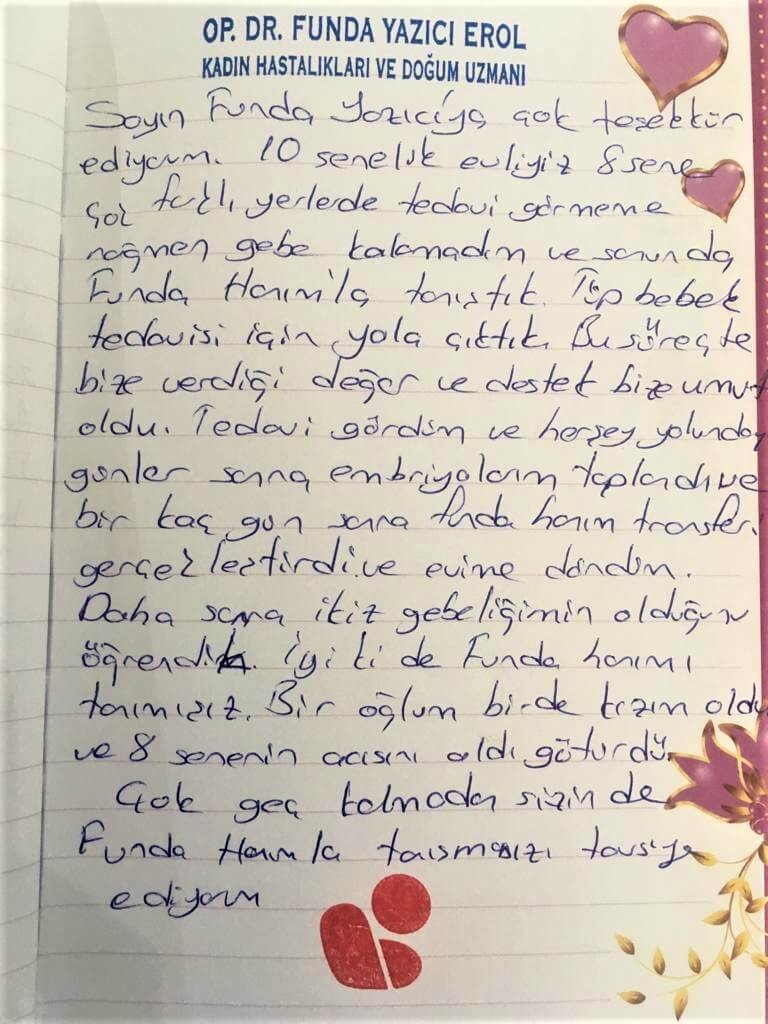 OP. DR. FUNDA YAZICI EROL
KADIN HASTALIKLARI VE DOĞUM UZMANI
Sayın Funda Yazıcı'ya çok teşekkür
ediyorum. 10 senelik evliyiz 8 sene
çok farklı yerlerde tedavi görmeme
rağmen gebe kalamadım ve sonunda
Funda Hanım'la tanıştık. Tüp bebek
tedavisi için yola çıktık. Bu süreçte
bize verdiği değer ve destek bize umut
oldu. Tedavi gördüm ve herşey yolunda
günler sonra embriyolarım toplandı ve
bir kaç gün sonra funda hanım transferi
gerçekleştirdi ve evime döndüm.
Daha sonra ikiz gebeliğimin olduğunu
öğrendik. İyi ki de Funda hanımı
tanımışız. Bir oğlum birde kızım oldu
ve 8 senenin acısını aldı götürdü.
Çok geç kalmadan sizin de
Funda Hanımla tanışmanızı tavsiye
ediyorum